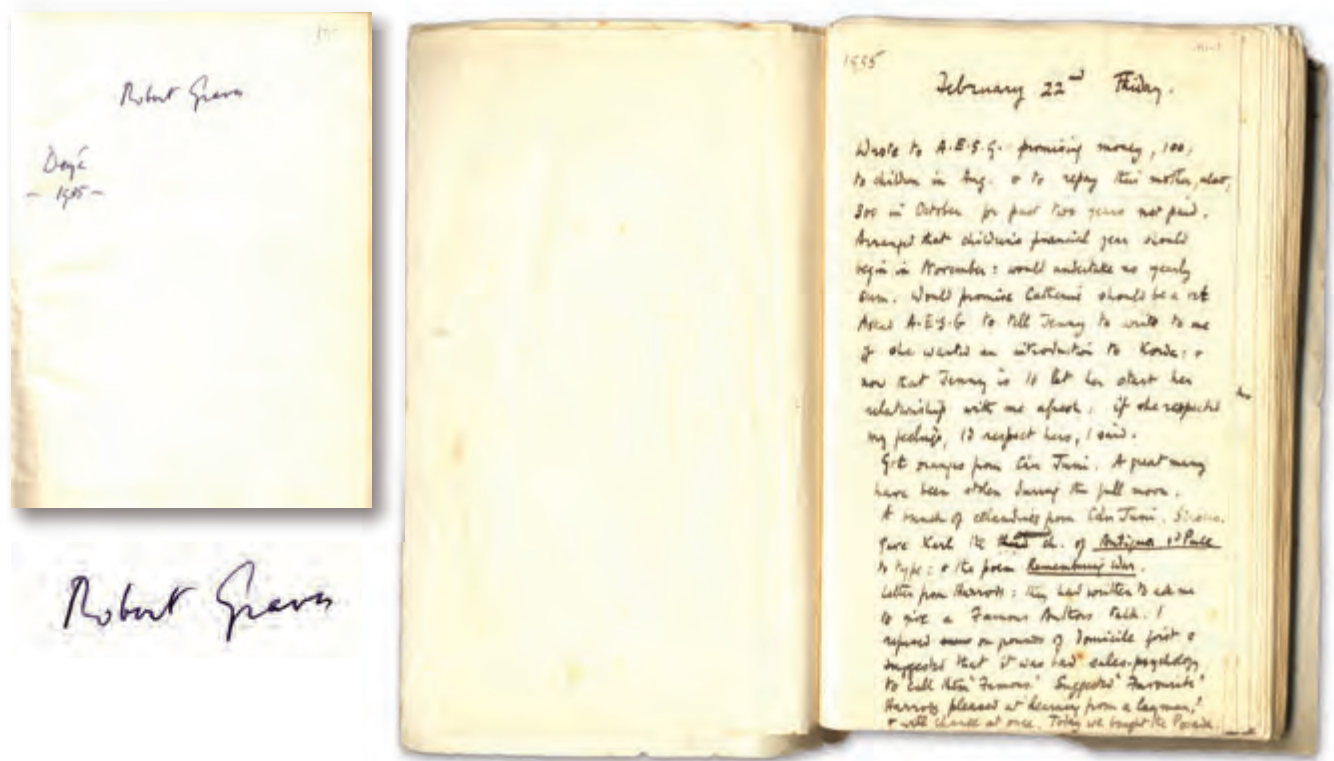 Robert Graves
Deyá
- 1935 -
Robert Graves
1935
February 22nd Friday.
Wrote to A.E.S.G. promising money, 100,
to children in Aug. & to repay this mother, also,
300 in October for past two years not paid.
Arranged that children's financial year should
begin in November: would undertake no yearly
sum. Would promise Catherine should be a
Asked A.E.S.G to tell Jenny to write to me
if she wanted an introduction to Korda: &
now that Jenny is 16 let her start her
relationship with me afresh: if she respected
my feelings, I'd respect hers, I said.
Got oranges from C'an Torni. A great many
have been stolen during the full moon.
A bunch of from C'an Torni.
Gave Karl the third ch. of Antigua 1d Puce
to type: & the poem Remembering War.
Letter from Harrods: they had written to ask me
to give a Famous Authors talk. I
refused on grounds of domicile first &
suggested that it was bad sales-psychology
to call them 'Famous'. Suggested 'Favourite'
Harrods pleased at hearing from a layman,
& will change at once. Today we bought the Posada.